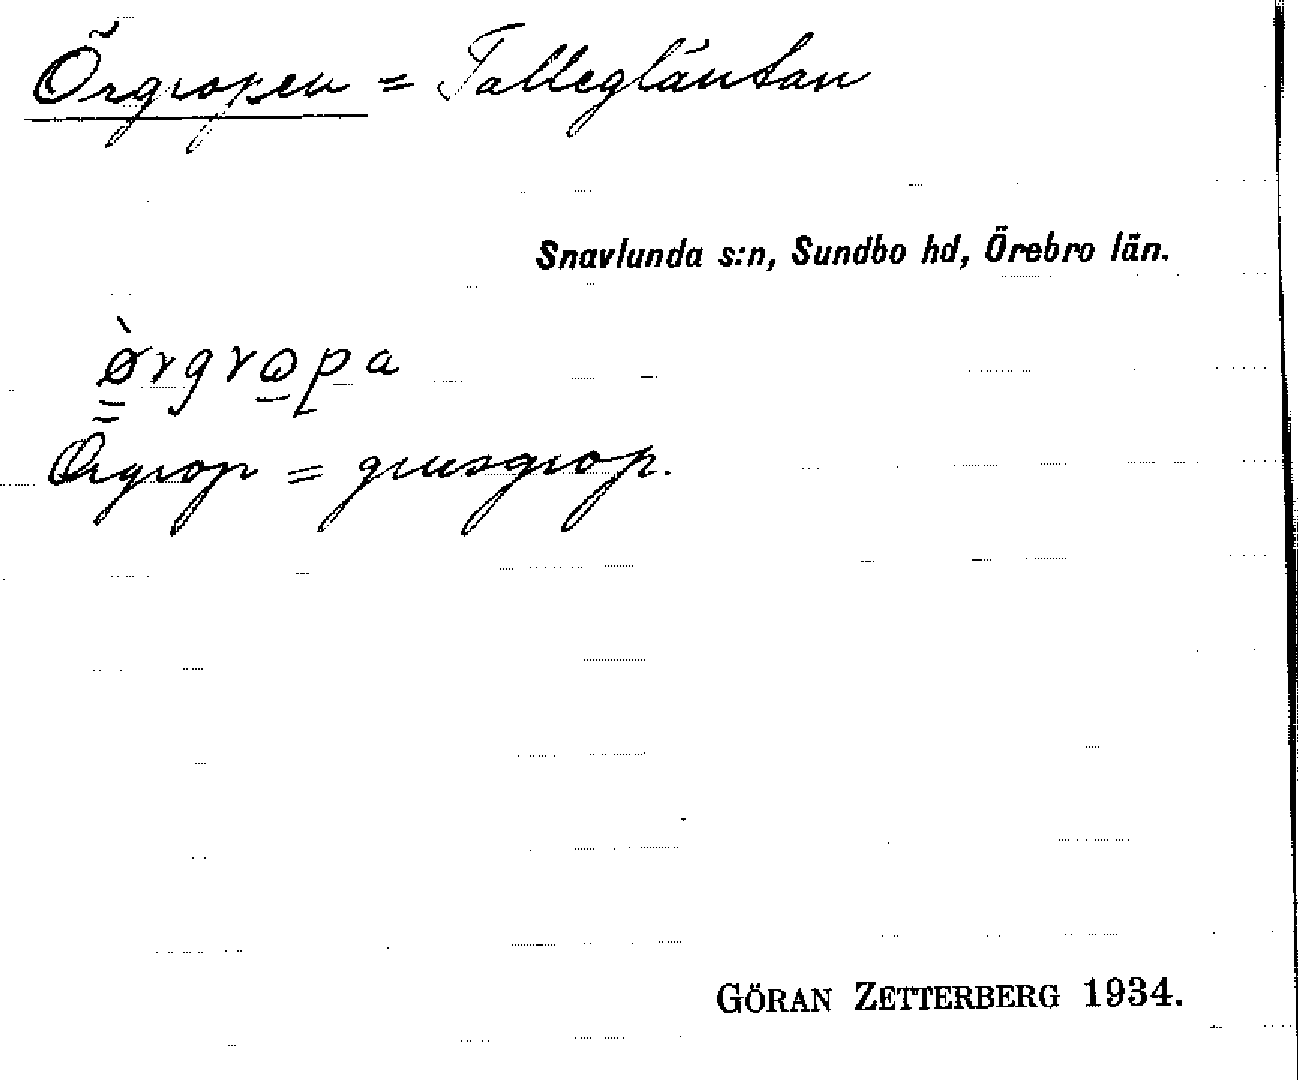 Örgropen = Tallegläntan
Snavlunda s:n, Sundbo hd, Örebro län.
ø̀rgropa
Örgrop = grusgrop.
GÖRAN ZETTERBERG 1934.